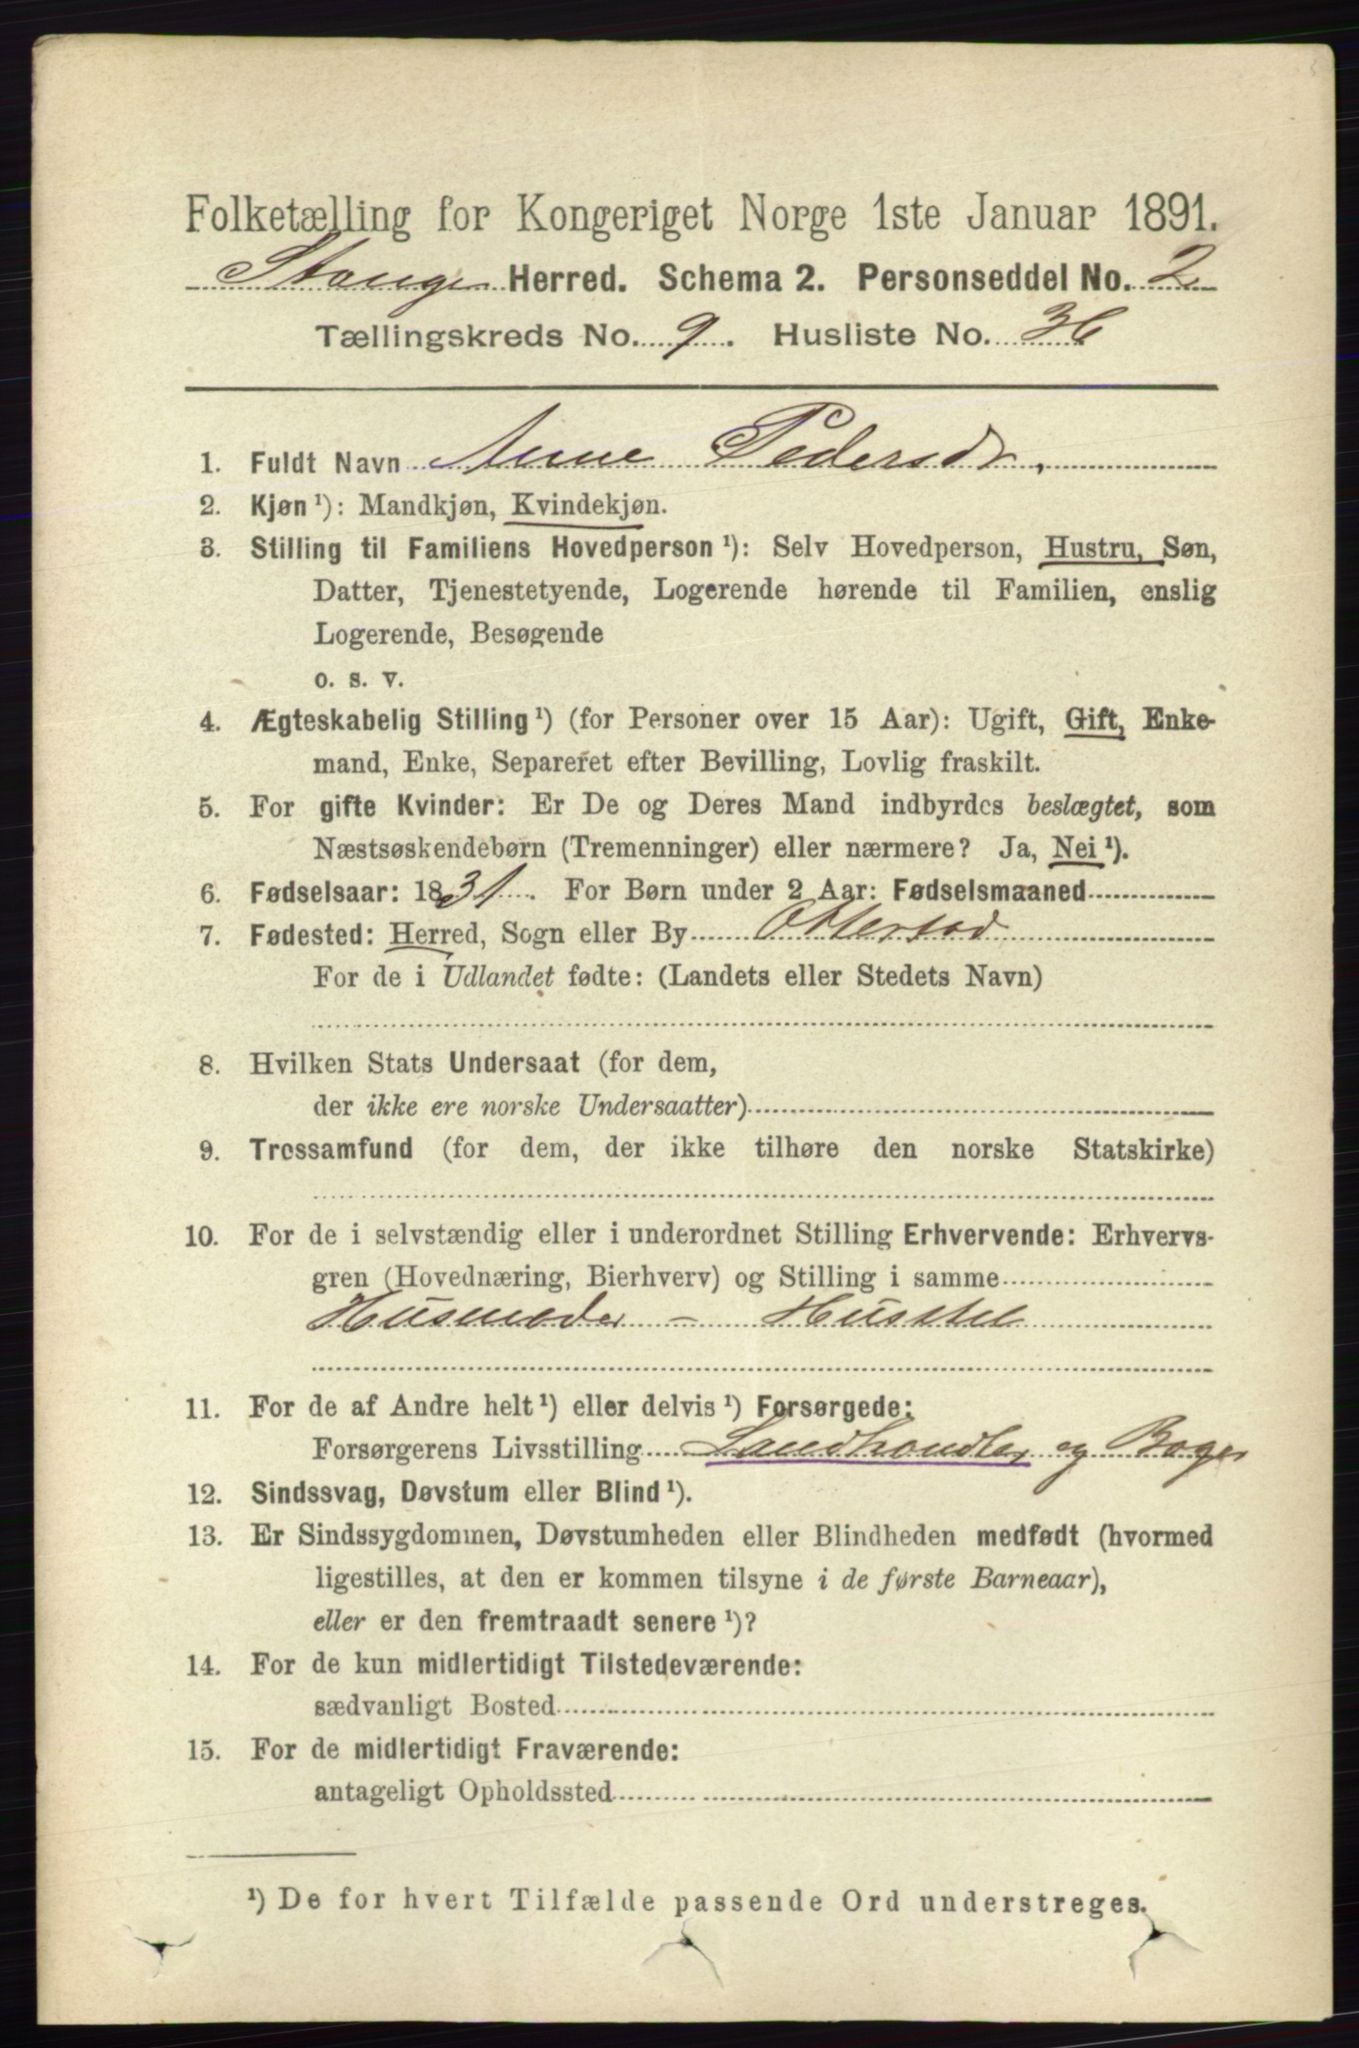 Folketælling for Kongeriget Norge 1ste Januar 1891.
Stange Herred. Schema 2. Personseddel No. 2
Tællingskreds No. 9. Husliste No. 36
1. Fuldt Navn Anne Pedersdr,
2. Kjøn ¹): Mandkjøn, Kvindekjøn.
3. Stilling til Familiens Hovedperson ¹): Selv Hovedperson, Hustru, Søn,
Datter, Tjenestetyende, Logerende hørende til Familien, enslig
Logerende, Besøgende
o. s. v.
4. Ægteskabelig Stilling ¹) (for Personer over 15 Aar): Ugift, Gift, Enke-
mand, Enke, Separeret efter Bevilling, Lovlig fraskilt.
5. For gifte Kvinder: Er De og Deres Mand indbyrdes beslægtet, som
Næstsøskendebørn (Tremenninger) eller nærmere? Ja, Nei ¹).
6. Fødselsaar: 1831. For Børn under 2 Aar: Fødselsmaaned
7. Fødested: Herred, Sogn eller By Ottestad
For de i Udlandet fødte: (Landets eller Stedets Navn)
8. Hvilken Stats Undersaat (for dem,
der ikke ere norske Undersaatter)
9. Trossamfund (for dem, der ikke tilhøre den norske Statskirke)
10. For de i selvstændig eller i underordnet Stilling Erhvervende: Erhvervs-
gren (Hovednæring, Bierhverv) og Stilling i samme
Husmoder - Husstel
11. For de af Andre helt ¹) eller delvis ¹) Forsørgede:
Forsørgerens Livsstilling Landhandler og Bager
12. Sindssvag, Døvstum eller Blind ¹).
13. Er Sindssygdommen, Døvstumheden eller Blindheden medfødt (hvormed
ligestilles, at den er kommen tilsyne i de første Barneaar),
eller er den fremtraadt senere ¹)?
14. For de kun midlertidigt Tilstedeværende:
sædvanligt Bosted
15. For de midlertidigt Fraværende:
antageligt Opholdssted
¹) De for hvert Tilfælde passende Ord understreges.